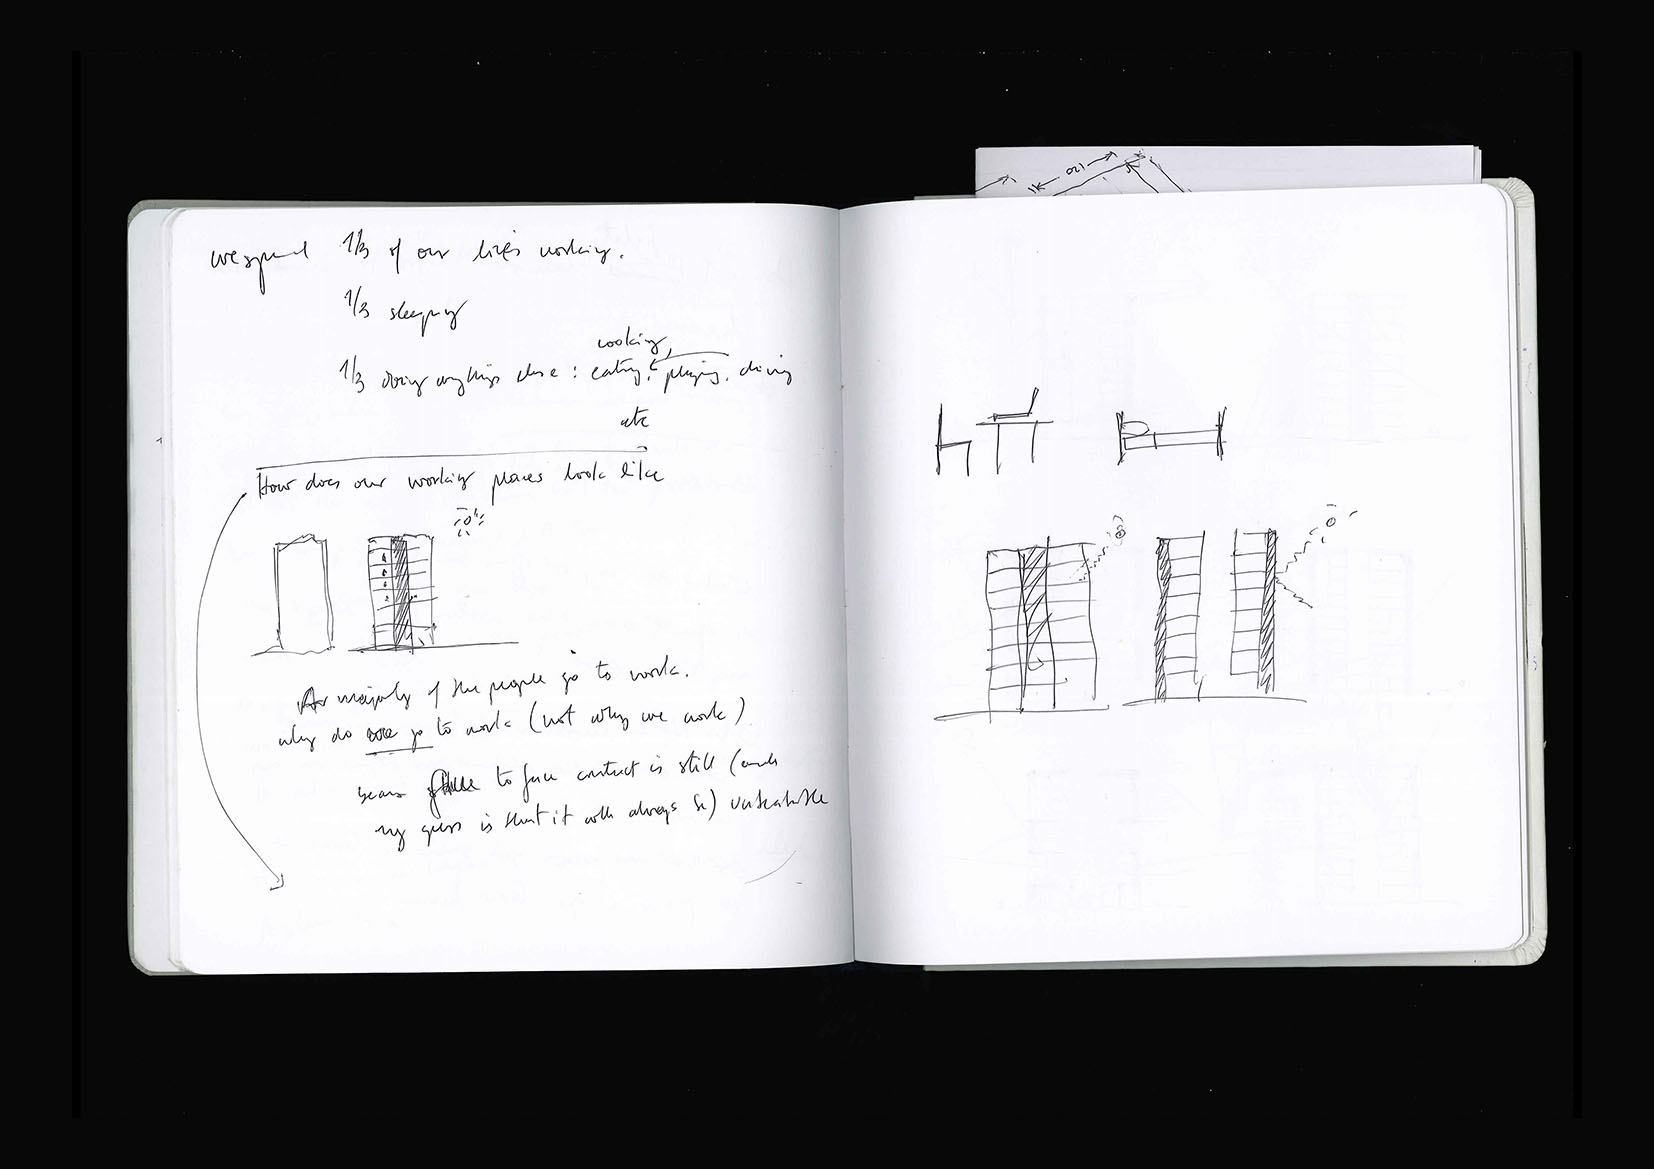 120
we spend 1/3 of our lifes working.
1/3 sleeping
cooking,
1/3 doing anything else : eating, playing, driving
etc
How does our working places look like
A majority of the people go to work.
why do we go to work (not why we work)
face to face contact is still (and
my guess is that it will always be) unbeatable